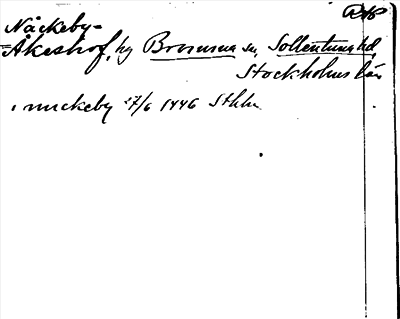 Näckeby-
=Åkeshof, hg Bromma sn, Sollentuna hd
Stockholms län
i neckeby 27/6 1446 Sthm